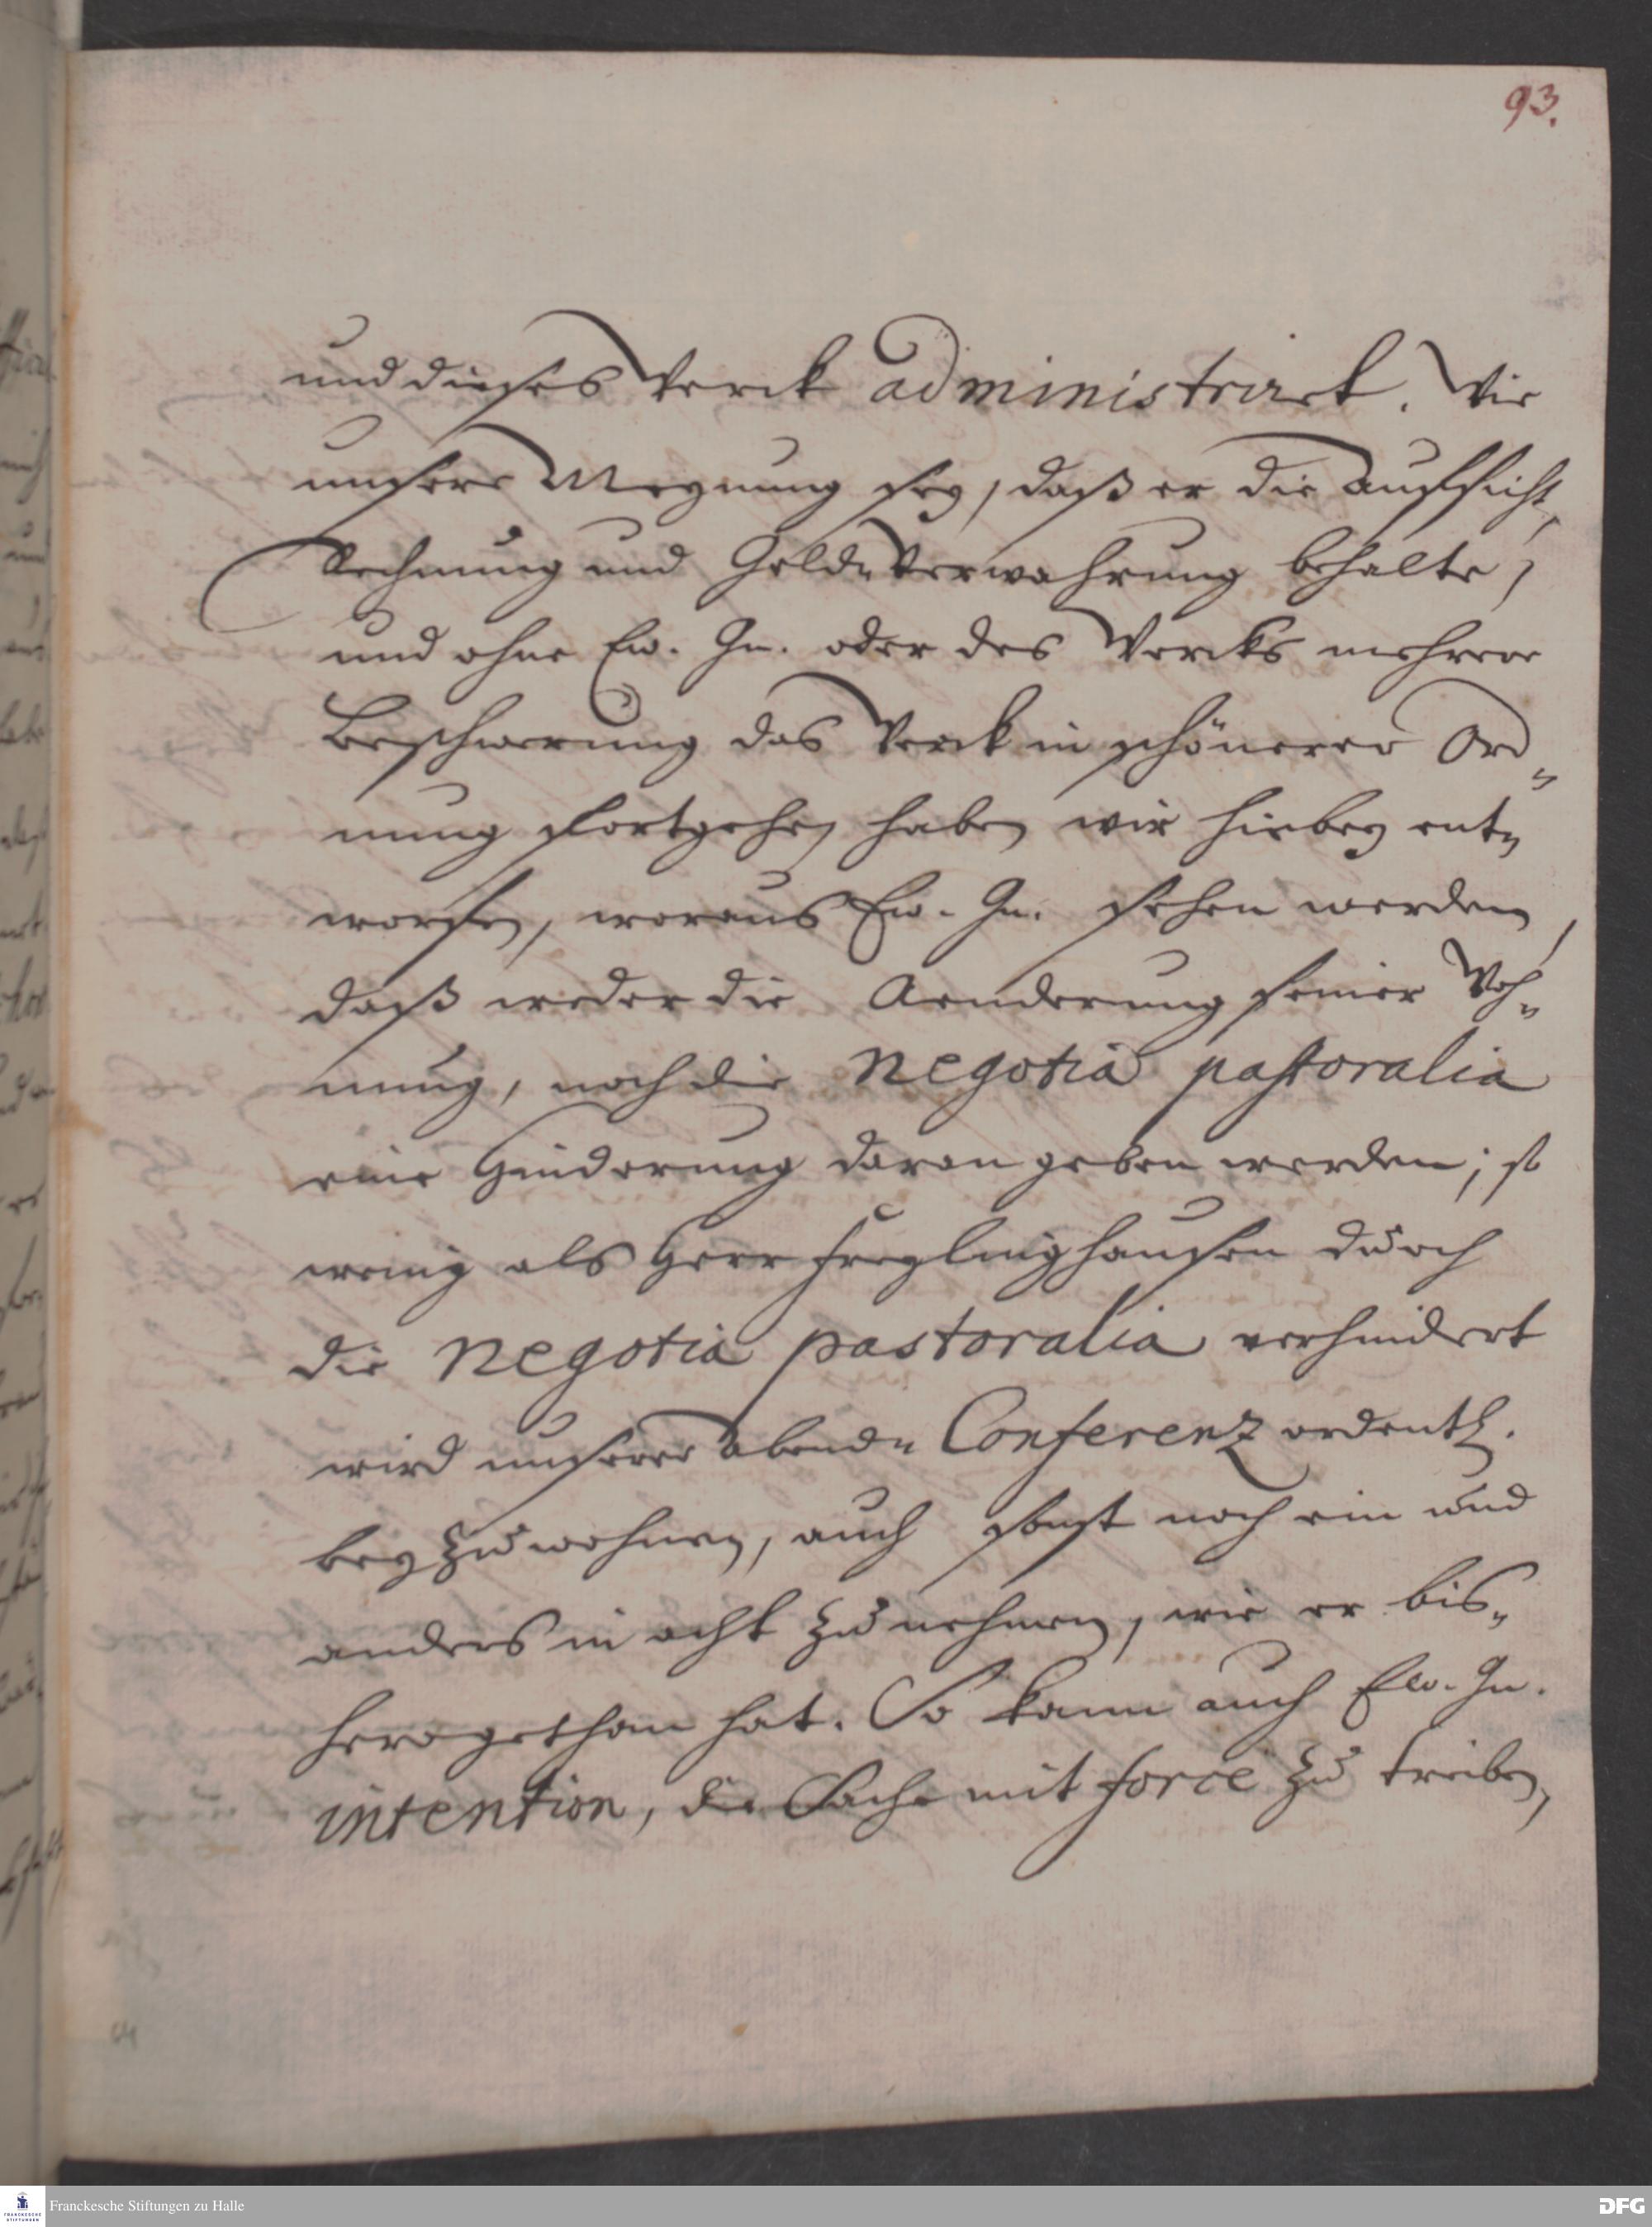 93.
und dieses Werck administrirt. Wie
unsere Meynung sey, daß er die Auffsicht,
Rechnung und Geld-Verwahrung behalte,
und ohne Ew. Gn. oder des Wercks mehrere
Beschwerung das Werck in schönerer Ord-
nung fortgehe, haben wir hiebey ent-
worffen, woraus Ew. Gn. sehen werden,
daß weder die Aenderung seiner Woh-
nung, noch die negotia pastoralia
eine Hinderung daran geben werden; so
wenig als Herr Freylinghausen durch
die negotia pastoralia verhindert
wird unserer Abend-Conferenz ordentl.
bey zu wohnen, auch sonst noch ein und
anders in acht zu nehmen, wie er bis-
hero gethan hat. So kann auch Ew. Gn.
intention, die Sache mit force zu treiben,
Franckesche Stiftungen zu Halle
DFG